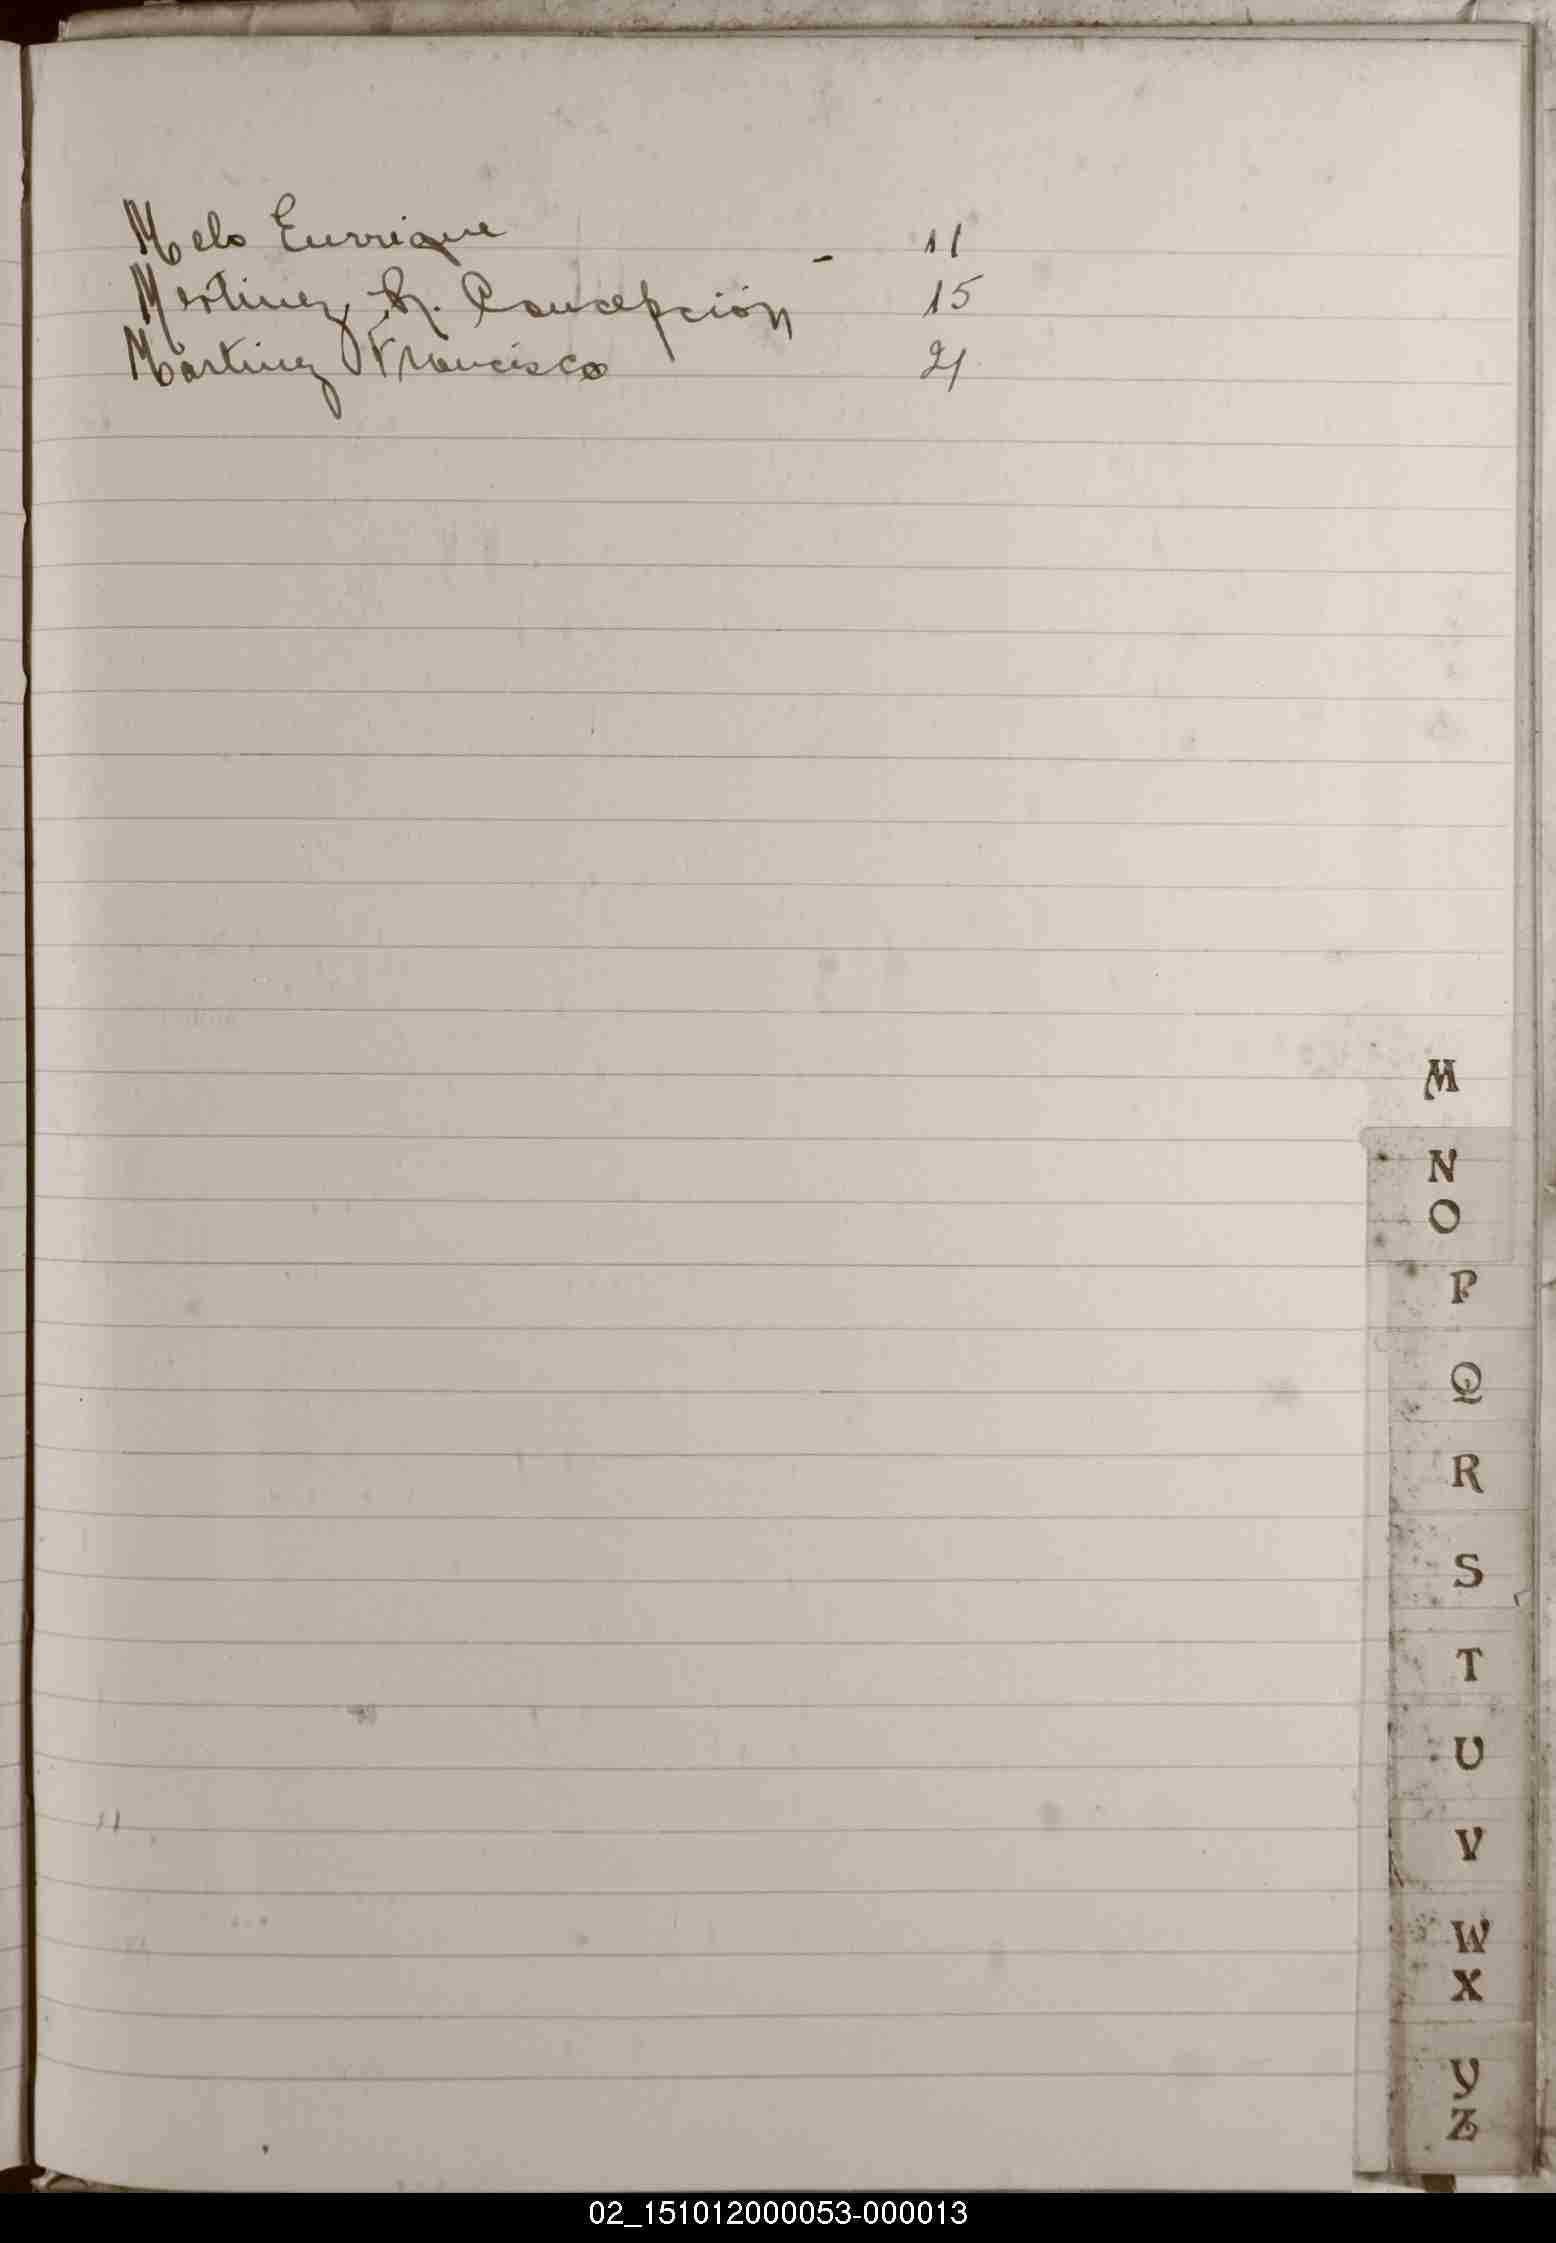 Melo Enrrique - 11
Martinez, Concepción 15
Martinez Francisco 21
M
N
O
P
Q
R
S
T
U
V
W
X
Y
Z
02_151012000053-000013